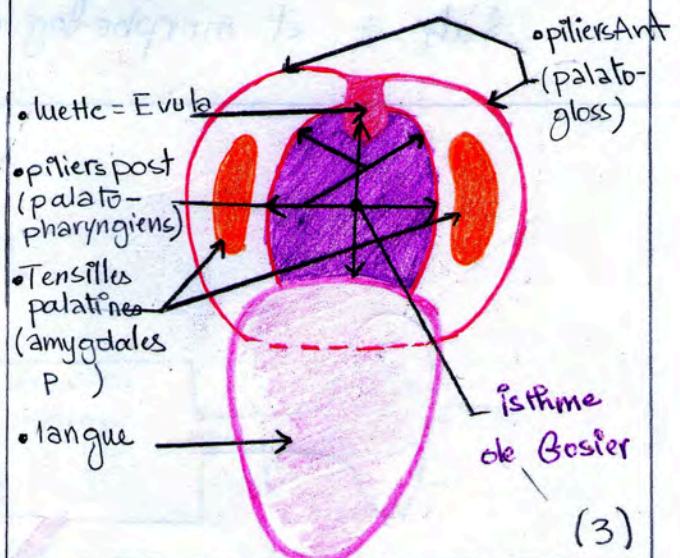 • piliers Ant
(palato-
gloss)
• luette = Evula
• piliers post
(palato-
pharyngiens)
• Tensilles
palatines
(amygdales
P )
• langue
isthme
de Gosier
(3)